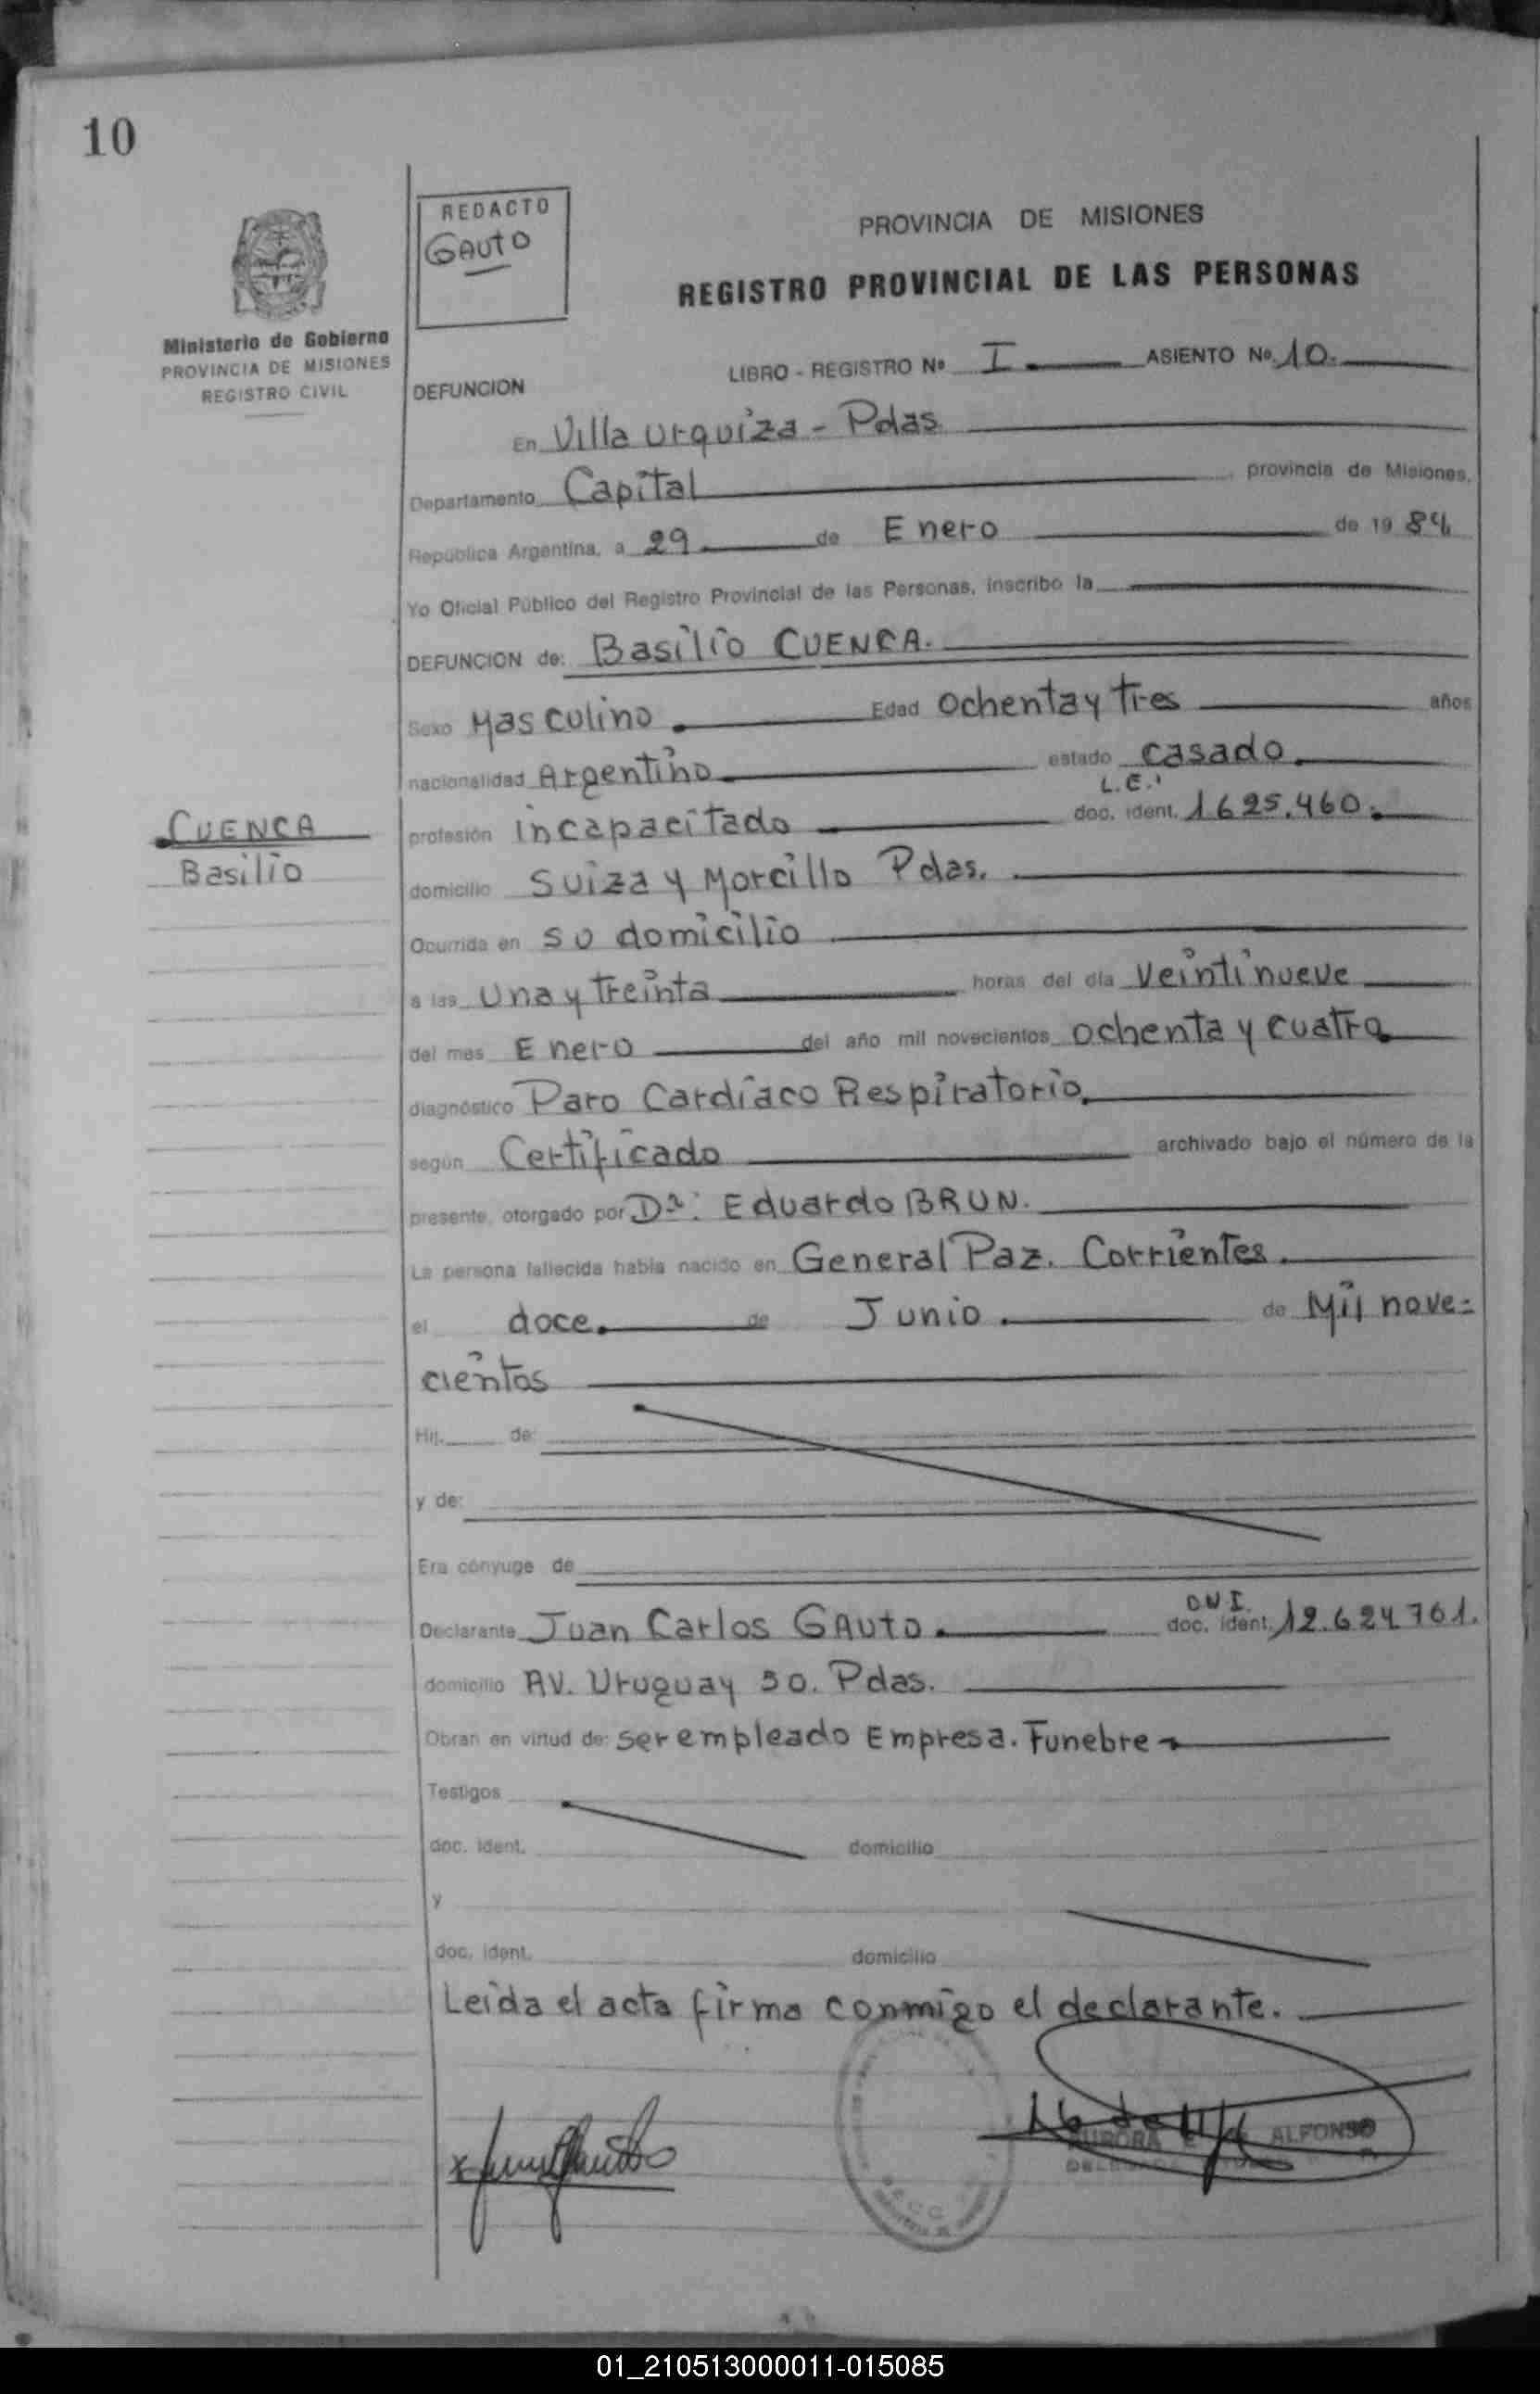 10
REDACTO
GAUTO
PROVINCIA DE MISIONES
REGISTRO PROVINCIAL DE LAS PERSONAS
Ministerio de Gobierno
PROVINCIA DE MISIONES
REGISTRO CIVIL
LIBRO - REGISTRO Nº I ASIENTO Nº 10.
DEFUNCION
En Villa Urquiza - Pdas
Departamento Capital provincia de Misiones,
República Argentina, a 29 de Enero de 1984
Yo Oficial Público del Registro Provincial de las Personas, inscribo la
DEFUNCION de: Basilio CUENCA.
Sexo Masculino. Edad Ochenta y tres años
nacionalidad Argentino estado casado.
L.E.
CUENCA
Basilio
profesión incapacitado doc. ident. 1625.460.
domicilio Suiza y Morcillo Pdas.
Ocurrida en su domicilio
a las Una y Treinta horas del día Veintinueve
del mes Enero del año mil novecientos Ochenta y cuatro
diagnóstico Paro Cardíaco Respiratorio.
según Certificado archivado bajo el número de la
presente, otorgado por Dr: Eduardo BRUN.
La persona fallecida había nacido en General Paz. Corrientes.
el doce. de Junio. de Mil nove=
cientos
Hij. de:
y de:
Era cónyuge de
D.N.I.
Declarante Juan Carlos GAUTO. doc. ident. 12.624.761.
domicilio AV. Uruguay 30. Pdas.
Obran en virtud de: ser empleado Empresa. Funebre
Testigos
doc. ident. domicilio
y
doc. ident. domicilio
Leída el acta firma conmigo el declarante.
AURORA E. ALFONSO
01_210513000011-015085